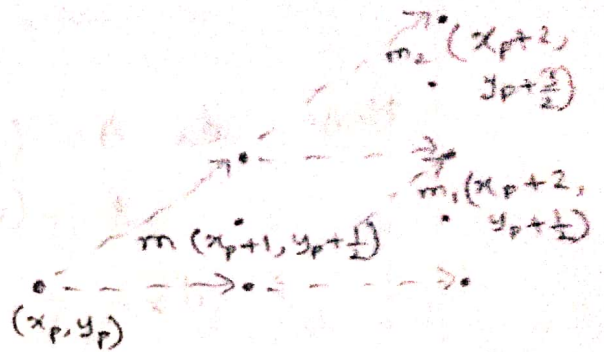 m₂ (xₚ+2,
yₚ+3/2)
m₁(xₚ+2,
yₚ+1/2)
m (xₚ+1, yₚ+1/2)
(xₚ, yₚ)